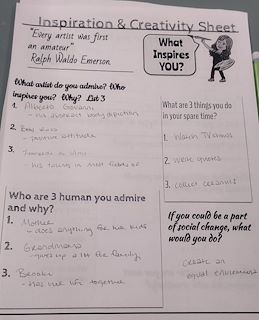 Inspiration & Creativity Sheet
"Every artist was first
an amateur"
Ralph Waldo Emerson
What
Inspires
YOU?
What artist do you admire? Who
inspires you? Why? List 3
1. Alberto
2.
positive attitude
3.
his talent in
What are 3 things you do
in your spare time?
1. Watch TV shows
2. write quotes
3. collect ceramics
Who are 3 human you admire
and why?
1. Mother
- does anything for her kids
2. Grandmama
- gives up a lot for family
3.
- Has her life together
If you could be a part
of social change, what
would you do?
create an
equal environment